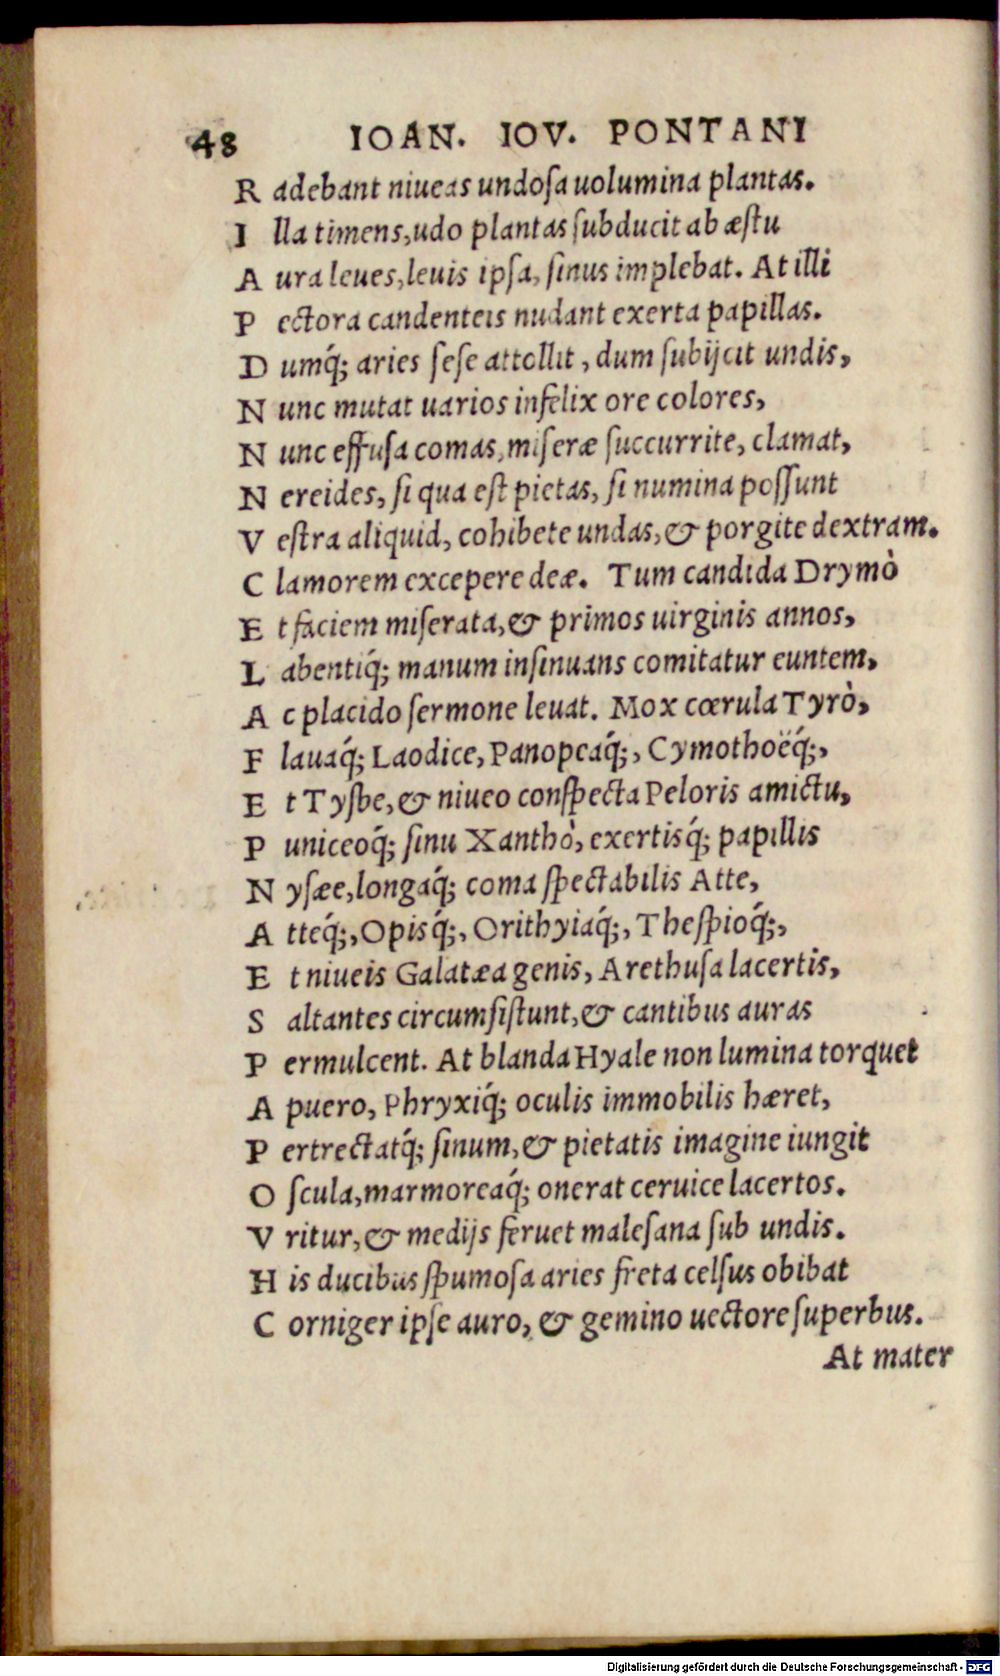 48 IOAN. IOV. PONTANI
R adebant niueas undosa uolumina plantas.
I lla timens, udo plantas subducit ab æstu
A ura leues, leuis ipsa, sinus implebat. At illi
P ectora candenteis nudant exerta papillas.
D umq́; aries sese attollit, dum subijcit undis,
N unc mutat uarios infelix ore colores,
N unc effusa comas, miseræ succurrite, clamat,
N ereides, si qua est pietas, si numina possunt
V estra aliquid, cohibete undas, & porgite dextram.
C lamorem excepere deæ. Tum candida Drymò
E t faciem miserata, & primos uirginis annos,
L abentiq́; manum insinuans comitatur euntem,
A c placido sermone leuat. Mox cœrula Tyrò,
F lauaq́; Laodice, Panopeaq́;, Cymothoëq́;,
E t Tysbe, & niueo conspecta Peloris amictu,
P uniceoq́; sinu Xanthò, exertisq́; papillis
N ysæe, longaq́; coma spectabilis Atte,
A tteq́;, Opisq́;, Orithyiaq́;, Thespioq́;,
E t niueis Galatæa genis, Arethusa lacertis,
S altantes circumsistunt, & cantibus auras
P ermulcent. At blanda Hyale non lumina torquet
A puero, Phryxiq́; oculis immobilis hæret,
P ertrectatq́; sinum, & pietatis imagine iungit
O scula, marmoreaq́; onerat ceruice lacertos.
V ritur, & medijs feruet malesana sub undis.
H is ducibus spumosa aries freta celsus obibat
C orniger ipse auro, & gemino uectore superbus.
At mater
Digitalisierung gefördert durch die Deutsche Forschungsgemeinschaft - DFG